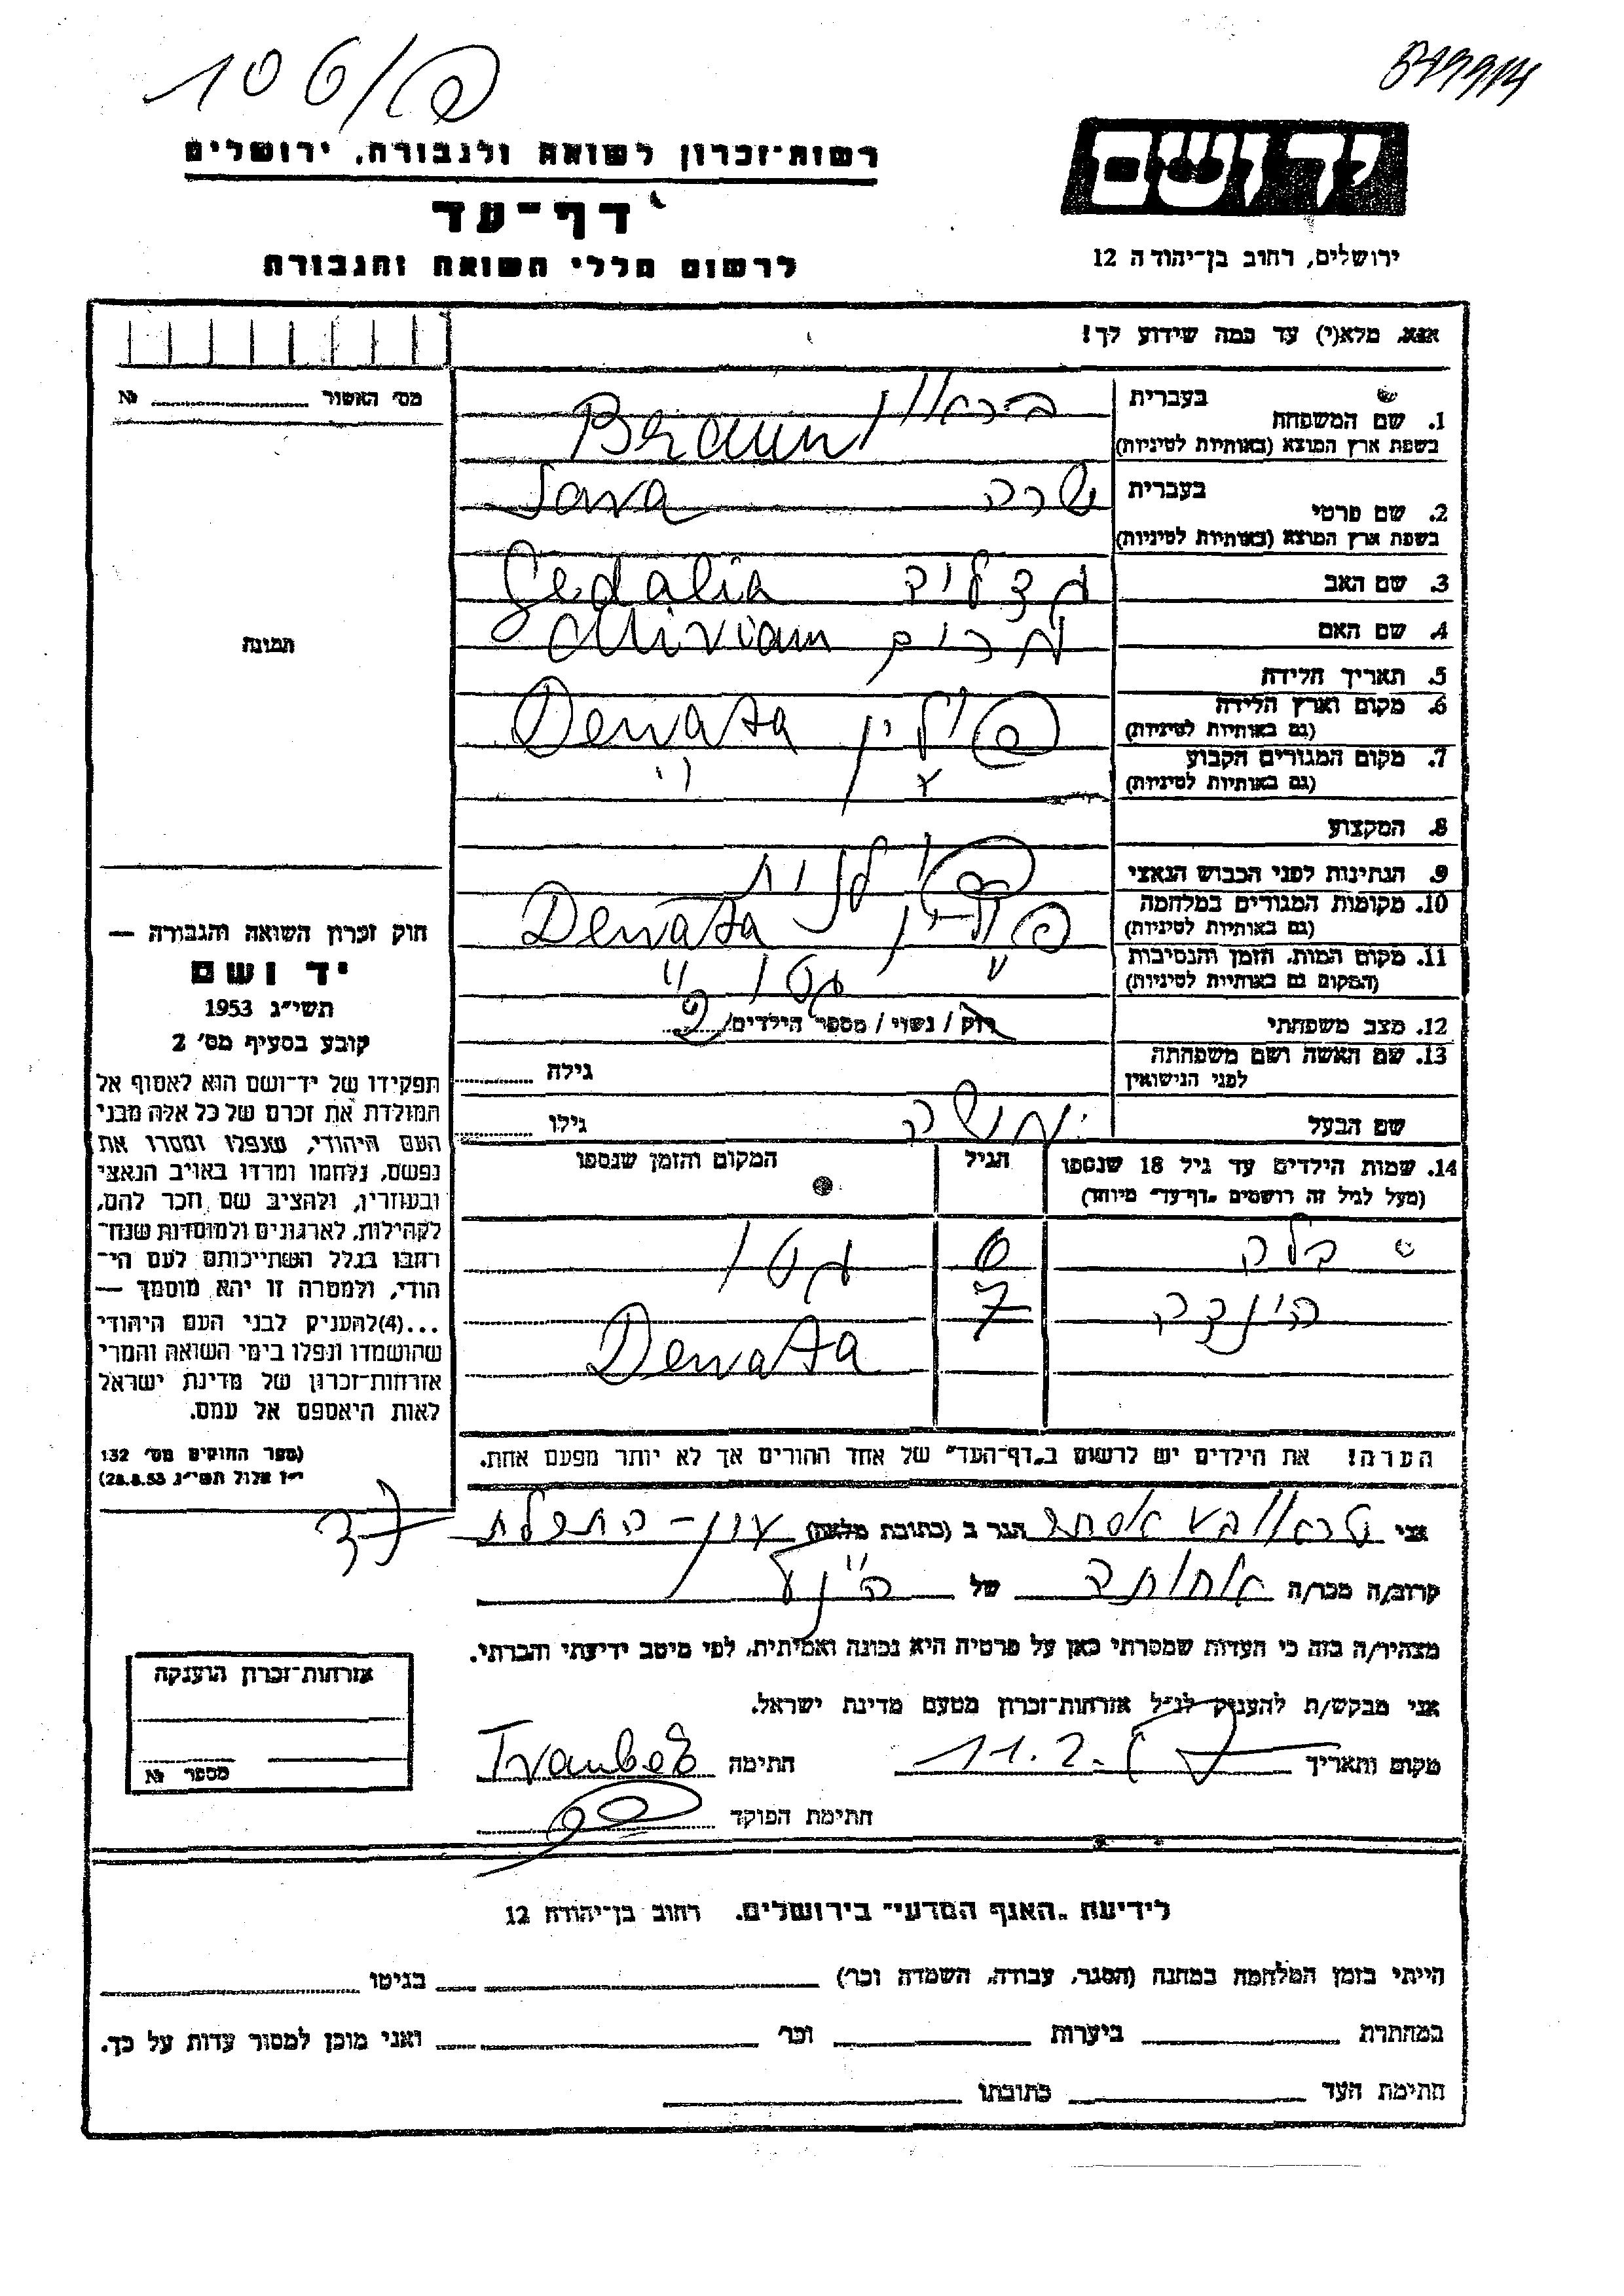 106/פ
רשות־זכרון לשואה ולגבורה, ירושלים
יד ושם
דף־עד
לרשום חללי השואה והגבורה
ירושלים, רחוב בן־יהודה 12
אנא, מלא(י) עד כמה שידוע לך!
מס׳ האשור № 
1. שם המשפחה
בעברית בראון
בשפת ארץ המוצא (באותיות לטיניות) Braun
2. שם פרטי
בעברית שרה Sara
בשפת ארץ המוצא (באותיות לטיניות)
3. שם האב גדליה Gedalia
4. שם האם מרים Miriam
5. תאריך הלידה
6. מקום וארץ הלידה
(גם באותיות לטיניות) פולין
7. מקום המגורים הקבוע
(גם באותיות לטיניות) "
8. המקצוע
9. הנתינות לפני הכבוש הנאצי פולנית
10. מקומות המגורים במלחמה
(גם באותיות לטיניות) פולין
11. מקום המות, הזמן והנסיבות
(המקום גם באותיות לטיניות) גטו
12. מצב משפחתי רוק / נשוי / מספר הילדים/
13. שם האשה ושם משפחתה
לפני הנישואין גילה
שם הבעל משה גילו
14. שמות הילדים עד גיל 18 שנספו
(מעל לגיל זה רושמים „דף־עד״ מיוחד)
הגיל
המקום והזמן שנספו
6 גטו
הינדה 7
הערה! את הילדים יש לרשום ב„דף־העד״ של אחד ההורים אך לא יותר מפעם אחת.
תמונה
חוק זכרון השואה והגבורה —
יד ושם
תשי״ג 1953
קובע בסעיף מס׳ 2
תפקידו של יד־ושם הוא לאסוף אל
המולדת את זכרם של כל אלה מבני
העם היהודי, שנפלו ומסרו את
נפשם, נלחמו ומרדו באויב הנאצי
ובעוזריו, ולהציב שם וזכר להם,
לקהילות, לארגונים ולמוסדות שנח־
רבו בגלל השתייכותם לעם הי־
הודי, ולמטרה זו יהא מוסמך —
...(4)להעניק לבני העם היהודי
שהושמדו ונפלו בימי השואה והמרי
אזרחות־זכרון של מדינת ישראל
לאות היאספם אל עמם.
(ספר החוקים מס׳ 132
י״ז אלול תשי״ג 28.8.53)
אני טראובע אסתר הגר ב (כתובת מלאה) עין-התכלת
קרוב/ה מכר/ה אחותה של
מצהיר/ה בזה כי העדות שמסרתי כאן על פרטיה היא נכונה ואמיתית, לפי מיטב ידיעתי והכרתי.
אני מבקש/ת להעניק לנ״ל אזרחות־זכרון מטעם מדינת ישראל.
מקום ותאריך 11.2. חתימה
חתימת הפוקד
אזרחות־זכרון הוענקה
מספר №
לידיעת „האגף המדעי״ בירושלים. רחוב בן־יהודה 12
הייתי בזמן המלחמה במחנה (הסגר, עבודה, השמדה וכו׳) בגיטו
במחתרת ביערות וכו׳ ואני מוכן למסור עדות על כך.
חתימת העד כתובתו